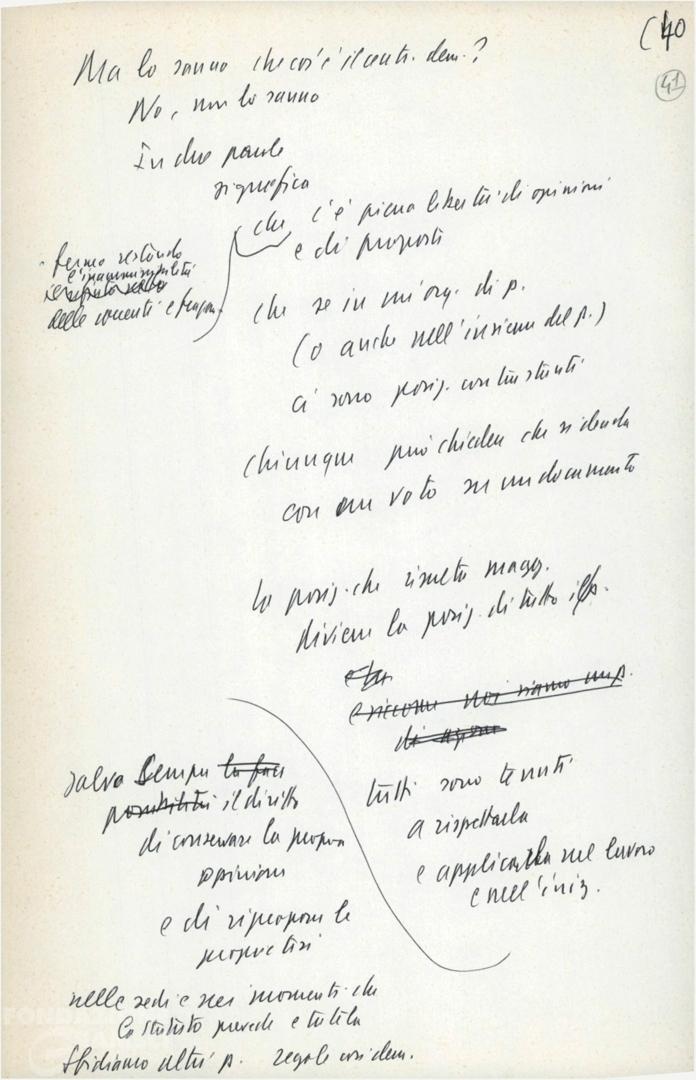 (40
41
Ma lo sanno che cos'è il centr. dem.?
No, non lo sanno
In due parole
significa
che c'è piena libertà di opinioni
e di proposti
fermo restando
l'inammissibilità
delle correnti e frazion.
che se in un'org. di p.
(o anche nell'insieme del p.)
ci sono posiz. contrastanti
chiunque può chieder che si decida
con un voto su un documento
la posiz. che risulta magg.
diviene la posiz. di tutto il p.
e siccome noi siamo un p.
di azione
tutti sono tenuti
a rispettarla
e applicarla nel lavoro
e nell'iniz.
salvo sempre la
possibilità il diritto
di conservare la propria
opinione
e di riproporre le
proprie tesi
nelle sedi e nei momenti che
lo statuto prevede e tutela
Sfidiamo altri p. regole così dem.